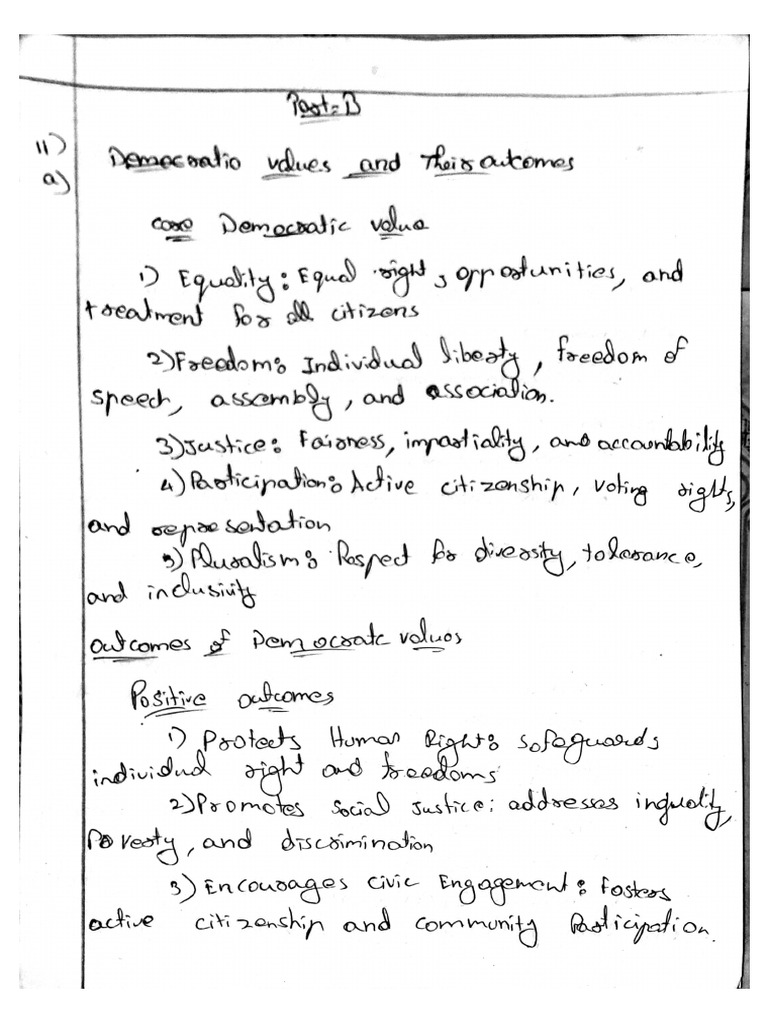 Part-B
11)
a) Democratic values and Their outcomes
core Democratic value
1) Equality: Equal right, opportunities, and
treatment for all citizens
2) Freedom: Individual liberty, freedom of
speech, assembly, and association.
3) Justice: Fairness, impartiality, and accountability
4) Participation: Active citizenship, voting rights,
and representation
5) Pluralism: Respect for diversity, tolerance,
and inclusivity
outcomes of Democratc values
Positive outcomes
1) Protects Human Right: safeguards
individual right and freedoms
2) Promotes social justice: addresses inquality,
Poverty, and discrimination
3) Encourages civic Engagement: Fosters
active citizenship and community Participation.